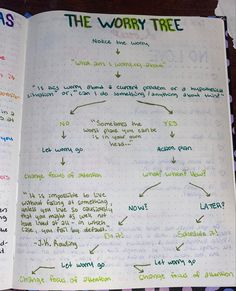 THE WORRY TREE
Notice the worry
"What am I worrying about?"
"Is my worry about a current problem or a hypothetical
situation" or, "can I do something/anything about this?"
NO
"Sometimes the
worst place you can be
is in your own
head..."
YES
Let worry go
Action plan
Change focus of attention
What? When? How?
"It is impossible to live
without failing at something
unless you live so cautiously
that you might as well not
have lived at all - in which
case, you fail by default."
- J.K. Rowling
NOW?
LATER?
Do it!
Schedule it!
Let worry go
Let worry go
Change focus of attention
Change focus of attention